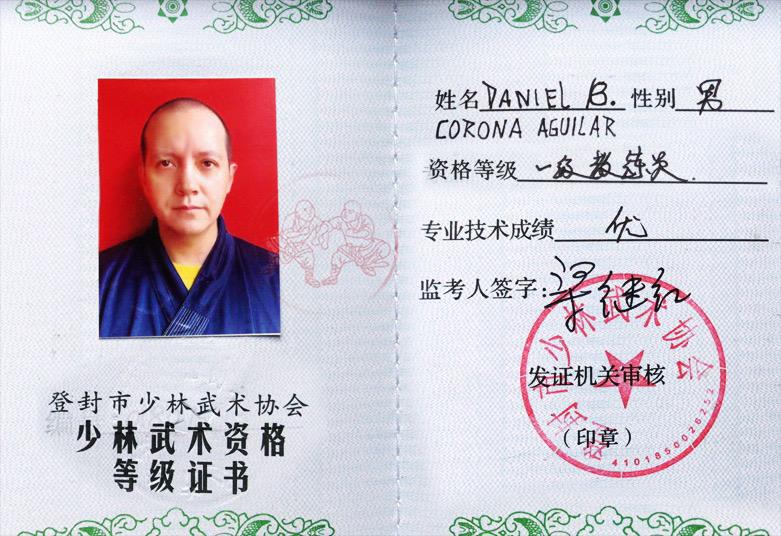 登封市少林武术协会
少林武术资格
等级证书
姓名 DANIEL B. 性别 男
CORONA AGUILAR
资格等级 一级教练员
专业技术成绩 优
监考人签字: 梁继红
发证机关审核
(印章)
登封市少林武术协会
4101850026252